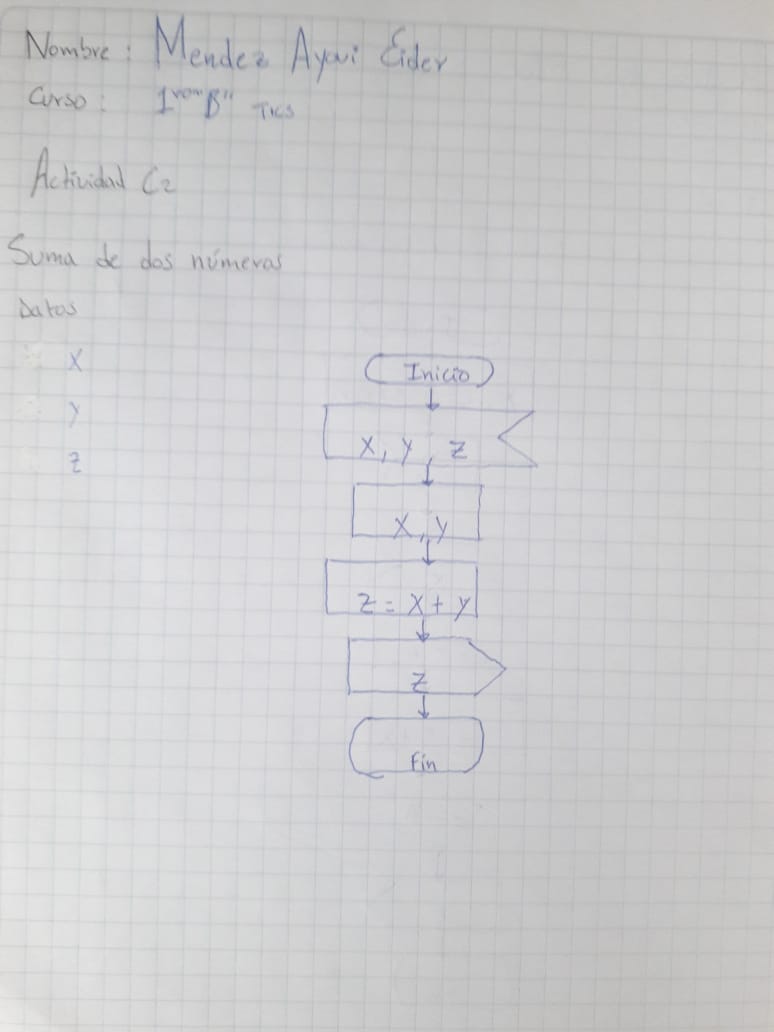 Nombre: Mendez Ayovi Eider
Curso: 1ro "B" TICS
Actividad C2
Suma de dos números
Datos
X
Y
Z
Inicio
X, Y, Z
X, Y
Z = X + Y
Z
Fin